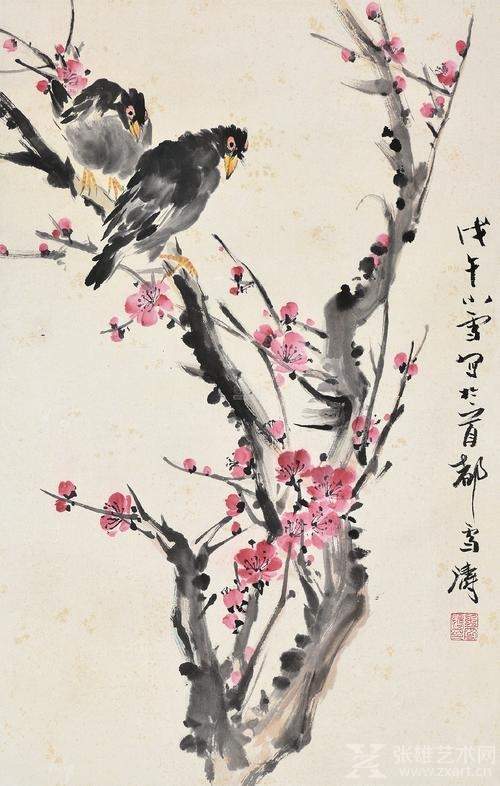 戊午小雪写于首都雪涛
张雄艺术网
www.zxart.cn